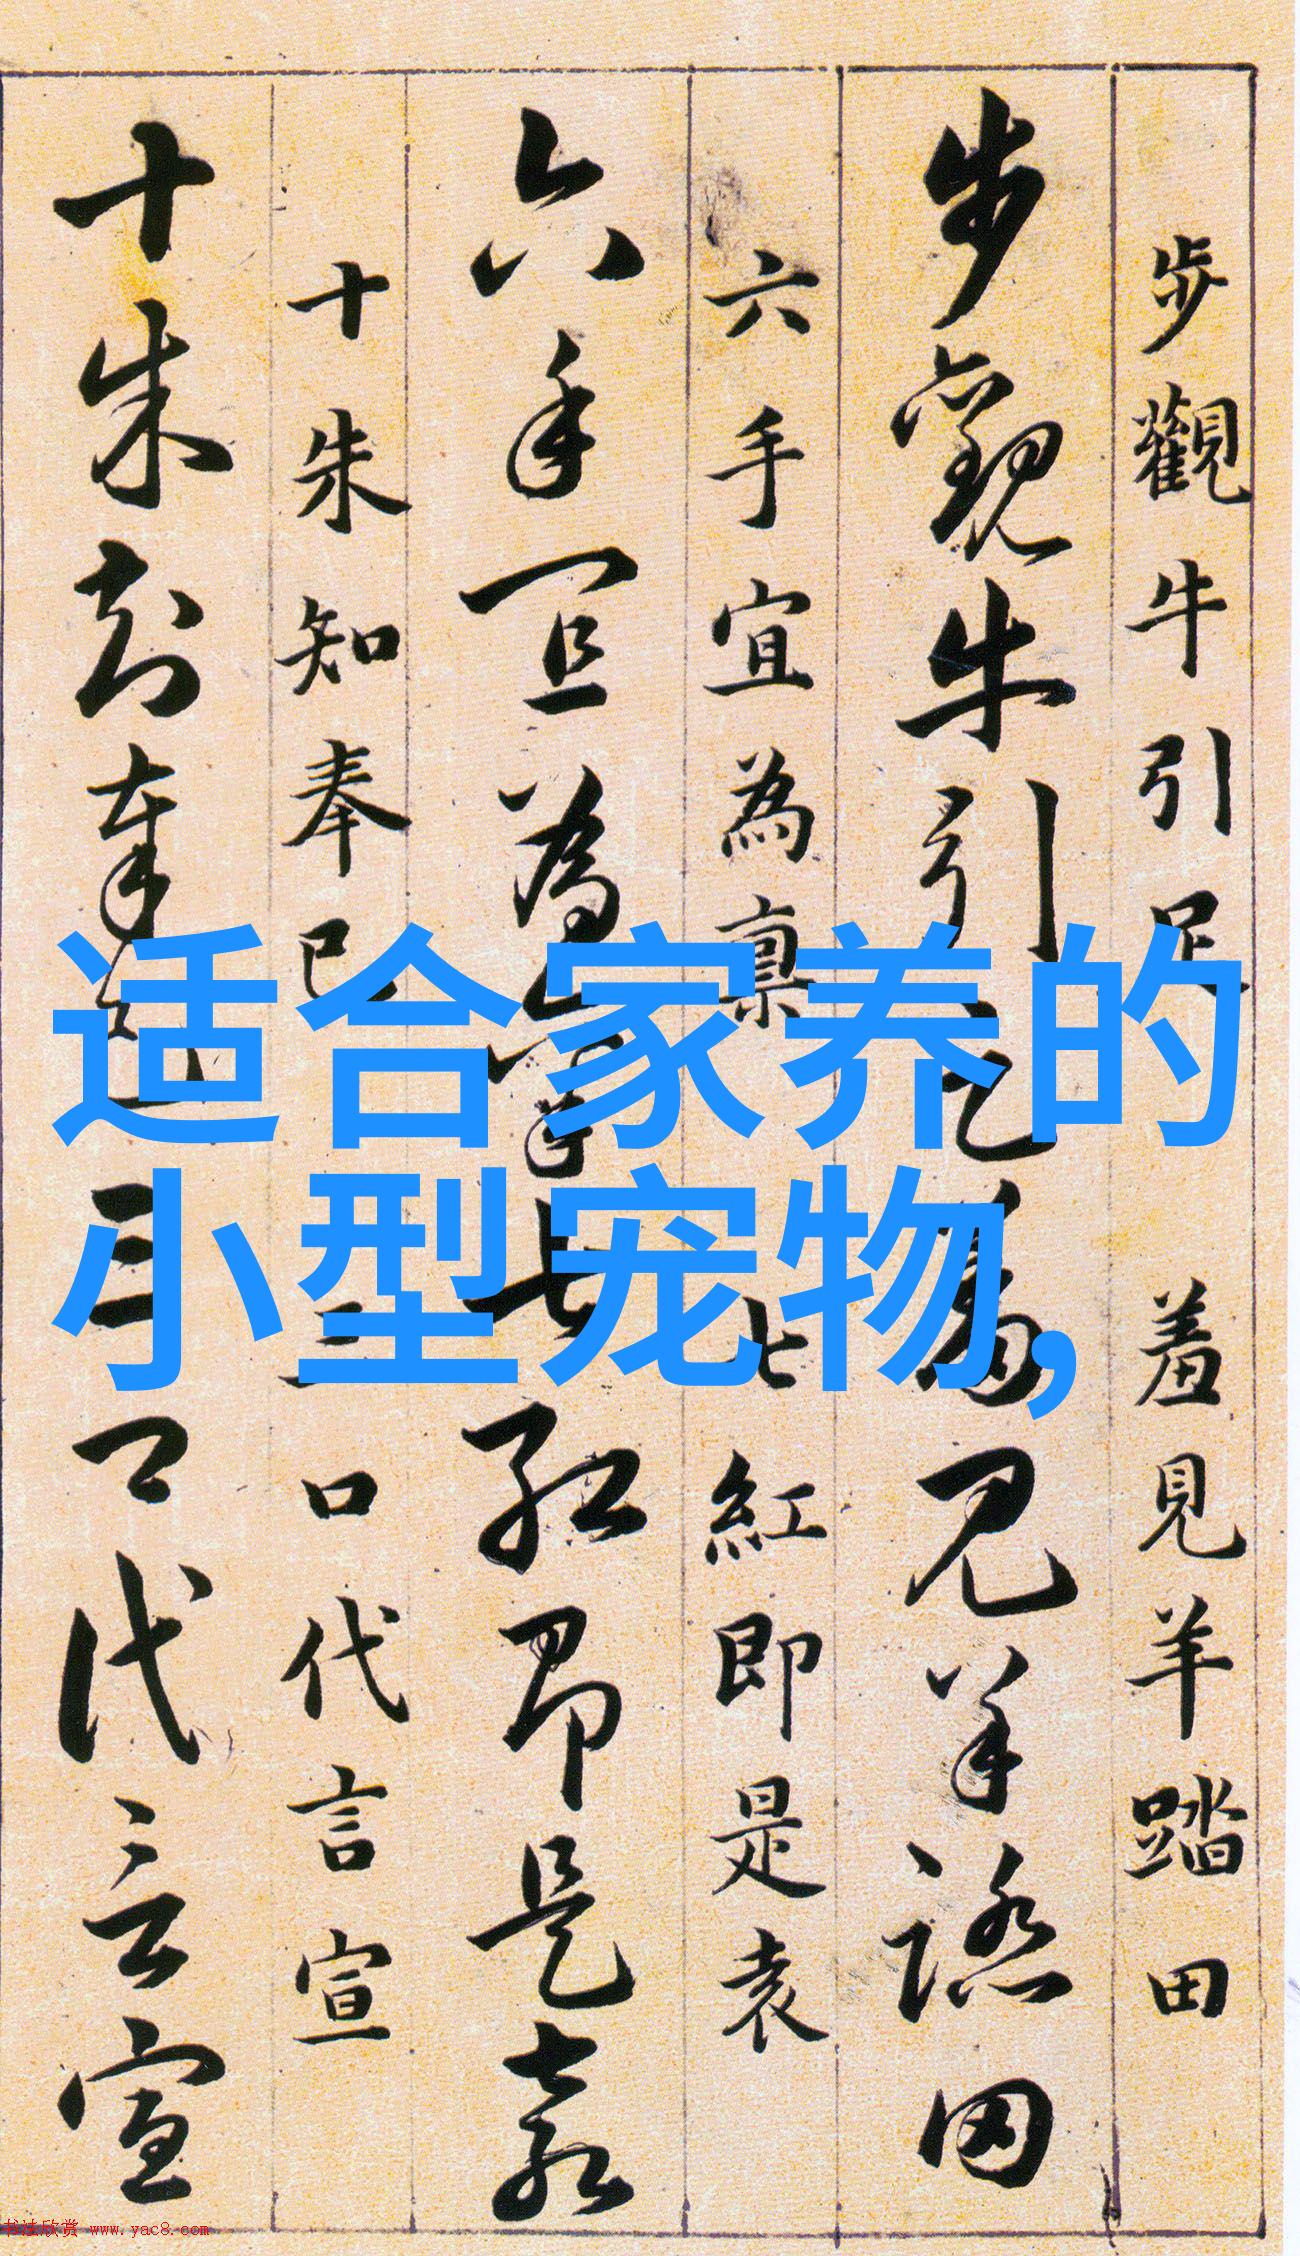 步觀牛引足 羞見羊踏田
步觀牛引足羞見羊踏田
六手宜為稟 七紅即是袁
六手宜為稟七紅即是袁
十朱知奉已 三口代言宣
十朱知奉已三口代言宣
适合家养的
小型宠物,
书法欣赏 www.yac8.com